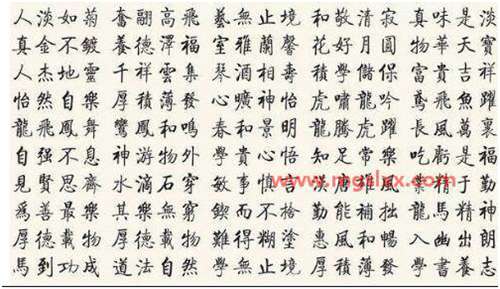 人淡如菊 奮翮高飛 藝無止境 和敬清寂 真味是淡
真金不鍍 養德澤福 室雅蘭馨 花好月圓 物華天寶
人杰地靈 千祥雲集 琴酒相壽 積學儲保 富貴吉祥
怡然自樂 厚積薄發 心曠神怡 虎嘯龍吟 鳶飛魚躍
龍飛鳳舞 鸞鳳和鳴 春和景明 龍騰虎躍 長風萬里
自强不息 神游物外 學貴心悟 知足常樂 吃虧是福
見賢思齊 水滴石穿 敏事慎言 漢唐雄風 業精于勤
爲善最樂 其樂無窮 而不 勤能補拙 龍馬精神
厚德載物 厚德載物 難得糊塗 惠風和暢 入幽出朗
馬到功成 道法自然 學無止境 厚積薄發 學書養志
www.mgslxx.com